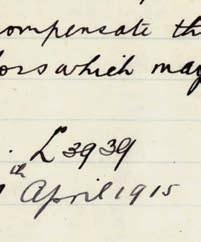 compensate th
ors which may
. L 3939
th
April 1915